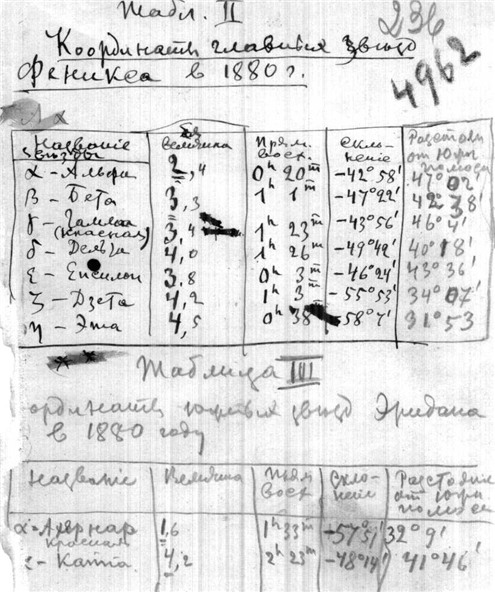 Табл. II
236
4962
Координаты главных звезд
Феникса в 1880 г.
Названіе звезды | Величина | Прям. восх. | Скло-неніе | Расстоян. от Южн. полюса
α – Альфа | 2,4 | 0h 20m | –42°58' | 47°02'
β – Бета | 3,3 | 1h 1m | –47°22' | 42°38'
γ – Гамма (красная) | 3,4 | 1h 23m | –43°56' | 46°4'
δ – Дельта | 4,0 | 1h 26m | –49°42' | 40°18'
ε – Епсилон | 3,8 | 0h 3m | –46°24' | 43°36'
ζ – Дзета | 4,2 | 1h 3m | –55°53' | 34°07'
η – Эта | 4,5 | 0h 38 | –58°7' | 31°53
Таблица III
ординаты южных звезд Эридана
в 1880 году
Названіе | Величина | Прям восх | Скло-неніе | Расстояние от Южн полюса
α – красная | 1,6 | 1h 33m | –57°51' | 32°9'
– Каппа | 4,2 | 2h 23m | –48°14' | 41°46'